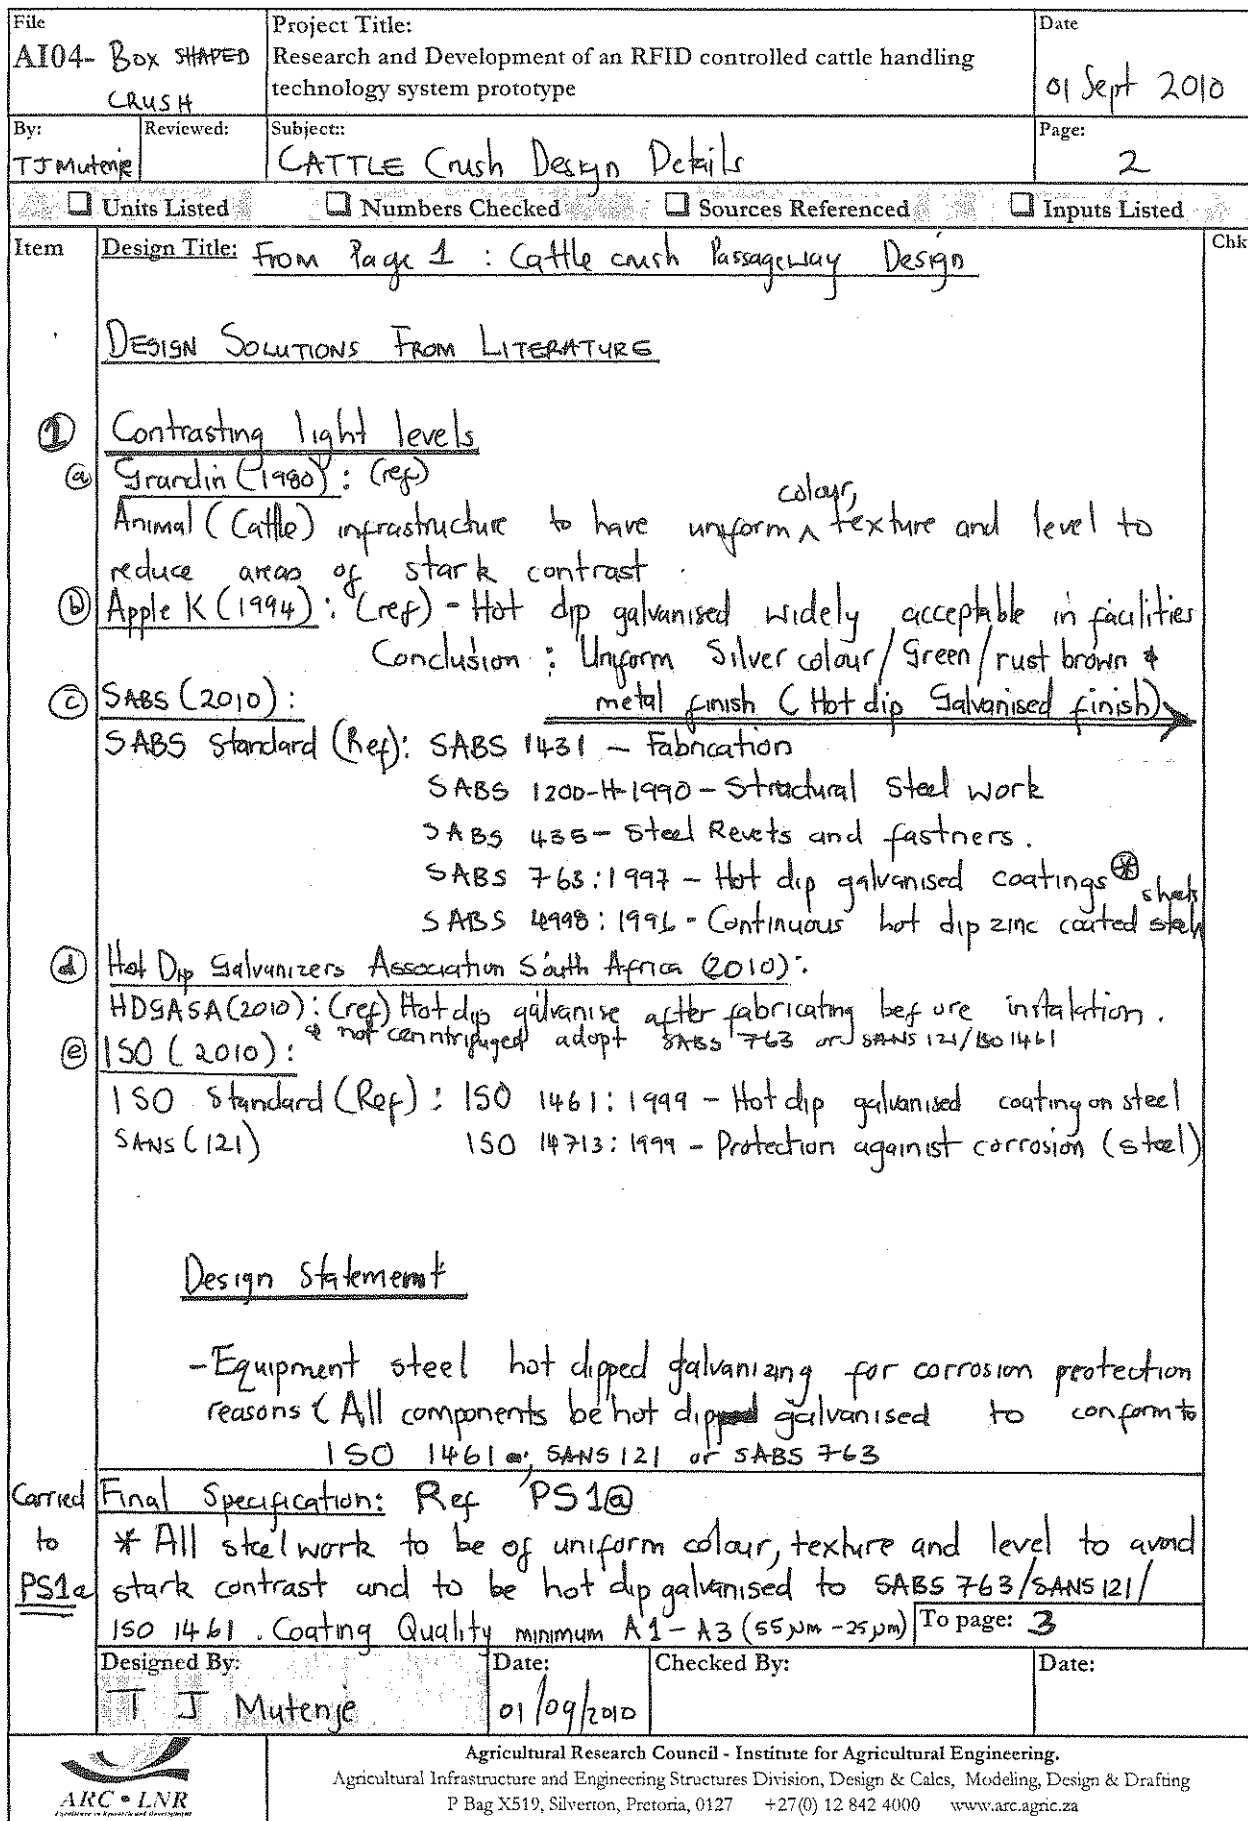 File
Project Title:
Date
AI04- Box SHAPED
CRUSH
Research and Development of an RFID controlled cattle handling
technology system prototype
01 Sept 2010
By:
Reviewed:
Subject::
Page:
TJ Mutenje
CATTLE Crush Design Details
2
Units Listed
Numbers Checked
Sources Referenced
Inputs Listed
Item
Design Title: From Page 1 : Cattle crush Passageway Design
Chk
DESIGN SOLUTIONS FROM LITERATURE
1 Contrasting light levels
a Grandin (1980) : (ref)
colour,
Animal (Cattle) infrastructure to have uniform ^ texture and level to
reduce areas of stark contrast .
b Apple K (1994) : (ref) - Hot dip galvanised widely acceptable in facilities
Conclusion : Uniform Silver colour/Green/rust brown &
c SABS (2010) :
metal finish (Hot dip Galvanised finish)
SABS Standard (Ref): SABS 1431 - Fabrication
SABS 1200-H-1990 - Structural Steel work
SABS 435 - Steel Revets and fastners.
SABS 763:1997 - Hot dip galvanised coatings *
sheets
SABS 4998:1996 - Continuous hot dip zinc coated
d Hot Dip Galvanizers Association South Africa (2010) :
HDGASA (2010) : (ref) Hot dip galvanise after fabricating before instalation.
& not cenntrifuged adopt SABS 763 or SANS 121/ISO 1461
e ISO (2010) :
ISO Standard (Ref) : ISO 1461:1999 - Hot dip galvanised coating on steel
SANS (121)
ISO 14713:1999 - Protection against corrosion (steel)
Design Statement
- Equipment steel hot dipped galvanizing for corrosion protection
reasons (All components be hot dipped galvanised to conform to
ISO 1461, SANS 121 or SABS 763
Carried
to
PS1a
Final Specification: Ref PS1a
* All steelwork to be of uniform colour, texture and level to avoid
stark contrast and to be hot dip galvanised to SABS 763/SANS 121/
ISO 1461 . Coating Quality minimum A1 - A3 (55 µm - 25 µm)
To page: 3
Designed By:
Date:
Checked By:
Date:
T J Mutenje
01/09/2010
ARC • LNR
Agricultural Research Council - Institute for Agricultural Engineering.
Agricultural Infrastructure and Engineering Structures Division, Design & Calcs, Modeling, Design & Drafting
P Bag X519, Silverton, Pretoria, 0127 +27(0) 12 842 4000 www.arc.agric.za